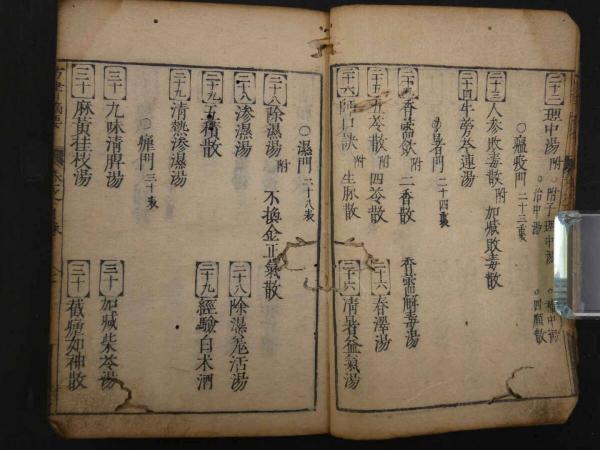 二十二 理中湯 附 附子理中湯
○治中湯 ○四順散
○瘟疫門 二十三張
二十三 人參敗毒散 附 加減敗毒散
二十四 牛蒡芩連湯
○暑門 二十四張
香薷飲 附 二香散 香薷解毒湯
二十五 五苓散 附 四苓散
二十六 春澤湯
二十六 附 生脈散
二十六 清暑益氣湯
○濕門 二十八張
二十八 除濕湯 附 不換金正氣散
二十八 滲濕湯
二十八 除濕羌活湯
二十九 五積散
二十九 經驗白术酒
二十九 清熱滲濕湯
○瘧門 三十張
三十 九味清脾湯
三十 加減柴苓湯
三十 麻黃桂枝湯
三十 截瘧如神散